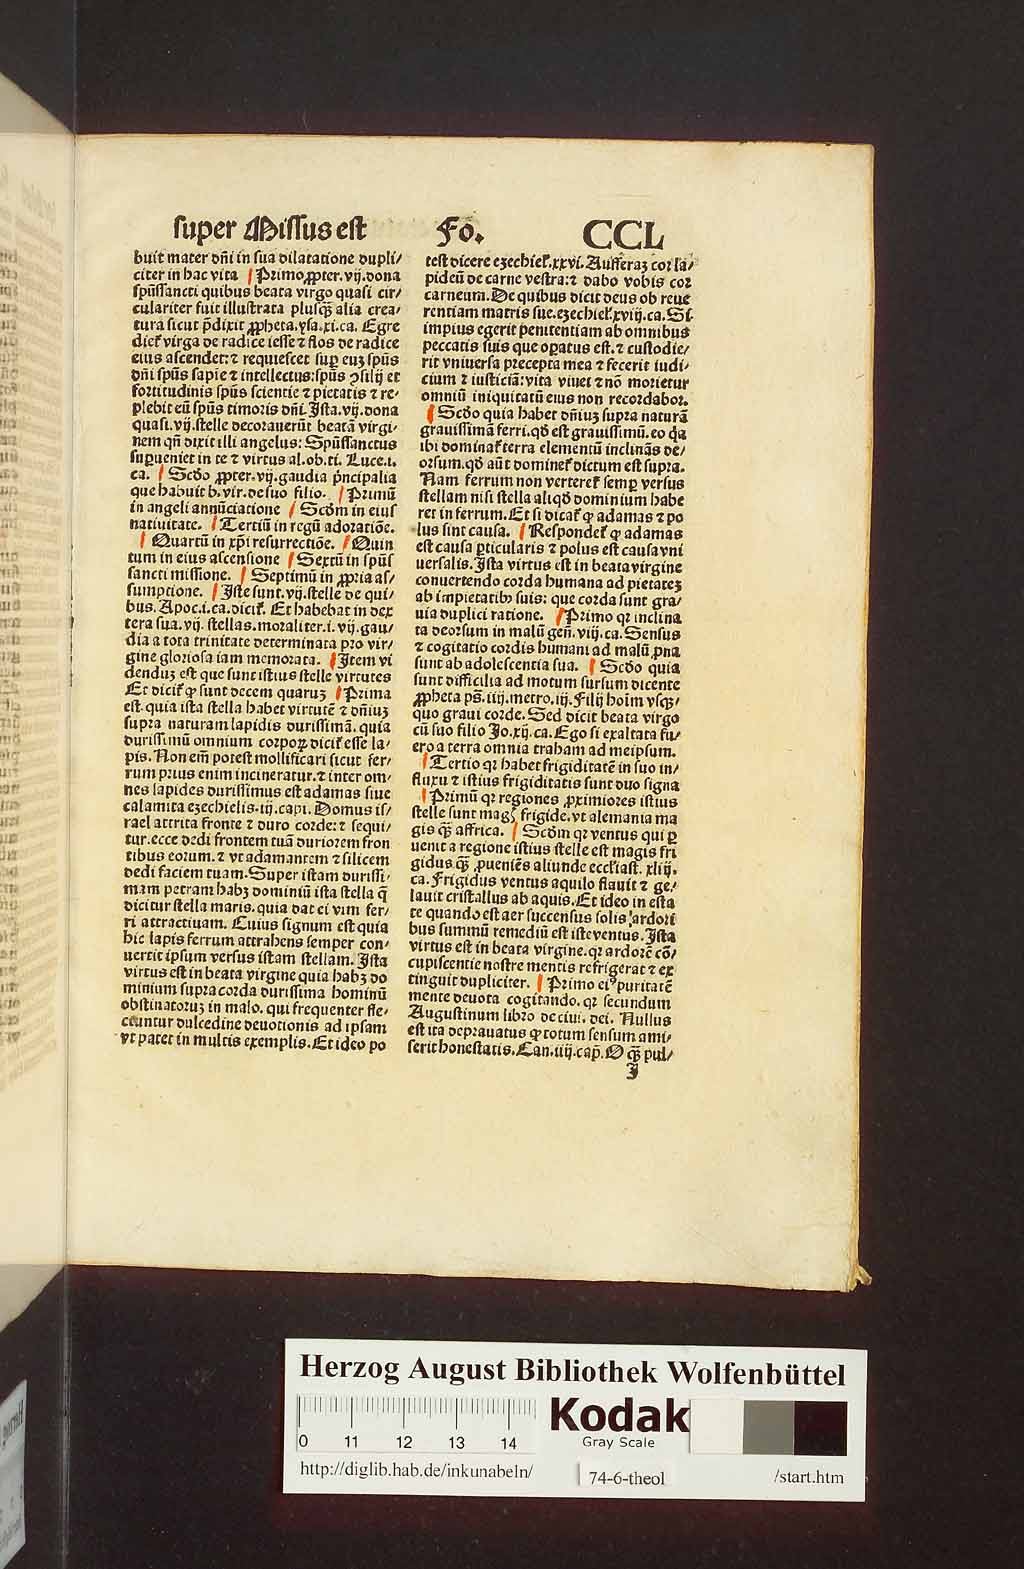 super Missus est Fo. CCL
buit mater dñi in sua dilatatione dupli/
citer in hac vita Primo ꝓpter .vij. dona
spũssancti quibus beata virgo quasi cir/
culariter fuit illustrata plusqꝫ alia crea/
tura sicut p̃dixit ꝓpheta. ysa. xi. ca. Egre
diet᷑ virga de radice iesse ⁊ flos de radice
eius ascendet: ⁊ requiescet suꝑ euꝫ spũs
dñi spũs sapie ⁊ intellectus: spũs ꝯsilij et
fortitudinis spũs scientie ⁊ pietatis ⁊ re/
plebit eũ spũs timoris dñi. Ista .vij. dona
quasi .vij. stelle decorauerũt beatã virgi/
nem qñ dixit illi angelus: Spũssanctus
suꝑueniet in te ⁊ virtus al. ob. ti. Luce. i.
ca. Scďo ꝓpter .vij. gaudia p̃ncipalia
que habuit b. vir. de suo filio. Primũ
in angeli annũciatione Scďm in eius
natiuitate. Tertiũ in regũ adoratiõe.
Quartũ in xp̃i resurrectiõe. Quin
tum in eius ascensione Sextũ in spũs
sancti missione. Septimũ in ꝓpria as/
sumptione. Iste sunt .vij. stelle de qui/
bus. Apoc. i. ca. dicit᷑. Et habebat in dex
tera sua .vij. stellas. moraliter .i. vij. gau/
dia a tota trinitate determinata pro vir/
gine gloriosa iam memorata. Item vi
denduꝫ est que sunt istius stelle virtutes
Et dicit᷑ ꝙ sunt decem quaruꝫ Prima
est. quia ista stella habet virtutẽ ⁊ dñiuꝫ
supra naturam lapidis durissimã. quia
durissimũ omnium corpoꝝ dicit᷑ esse la/
pis. Non em̃ potest mollificari sicut fer/
rum prius enim incineratur. ⁊ inter om/
nes lapides durissimus est adamas siue
calamita ezechielis. iij. capi. Domus is/
rael attrita fronte ⁊ duro corde: ⁊ sequi/
tur. ecce dedi frontem tuã duriorem fron
tibus eorum. ⁊ vt adamantem ⁊ silicem
dedi faciem tuam. Super istam durissi/
mam petram habꝫ dominiũ ista stella q̃
dicitur stella maris. quia dat ei vim fer/
ri attractiuam. Cuius signum est quia
hic lapis ferrum attrahens semper con/
uertit ipsum versus istam stellam. Ista
virtus est in beata virgine quia habꝫ do
minium supra corda durissima hominũ
obstinatoruꝫ in malo. qui frequenter fle/
ctuntur dulcedine deuotionis ad ipsam
vt patet in multis exemplis. Et ideo po
test dicere ezechiel᷑. xxvi. Aufferaꝫ cor la/
pideũ de carne vestra: ⁊ dabo vobis cor
carneum. De quibus dicit deus ob reue
rentiam matris sue. ezechiel᷑. xviij. ca. Si
impius egerit penitentiam ab omnibus
peccatis suis que oꝑatus est. ⁊ custodie/
rit vniuersa precepta mea ⁊ fecerit iudi/
cium ⁊ iusticiã: vita viuet ⁊ nõ morietur
omniũ iniquitatũ eius non recordabor.
Scďo quia habet dñiuꝫ supra naturã
grauissimã ferri. qď est grauissimũ. eo ꝙ
ibi dominat᷑ terra elementũ inclinãs de/
orsum. qď aũt dominet᷑ dictum est supra.
Nam ferrum non verteret᷑ semꝑ versus
stellam nisi stella aliqď dominium habe
ret in ferrum. Et si dicat᷑ ꝙ adamas ⁊ po
lus sint causa. Respondet᷑ ꝙ adamas
est causa ꝑticularis ⁊ polus est causa vni
uersalis. Ista virtus est in beata virgine
conuertendo corda humana ad pietateꝫ
ab impietatibꝰ suis: que corda sunt gra/
uia duplici ratione. Primo qꝛ inclina
ta deorsum in malũ geñ. viij. ca. Sensus
⁊ cogitatio cordis humani ad malũ ꝓna
sunt ab adolescentia sua. Scďo quia
sunt difficilia ad motum sursum dicente
ꝓpheta pš. iiij. metro. iij. Filij hoim̃ vsqꝫ/
quo graui corde. Sed dicit beata virgo
cũ suo filio Jo. xij. ca. Ego si exaltata fu/
ero a terra omnia traham ad meipsum.
Tertio qꝛ habet frigiditatẽ in suo in/
fluxu ⁊ istius frigiditatis sunt duo signa
Primũ qꝛ regiones ꝓximiores istius
stelle sunt magꝭ frigide. vt alemania ma
gis qꝫ̃ affrica. Scďm qꝛ ventus qui ꝑ
uenit a regione istius stelle est magis fri
gidus qꝫ̃ ꝓueniẽs aliunde eccl᷑iast. xliij.
ca. Frigidus ventus aquilo flauit ⁊ ge/
lauit cristallus ab aquis. Et ideo in esta
te quando est aer succensus solis ardori
bus summũ remediũ est iste ventus. Ista
virtus est in beata virgine. qꝛ ardorẽ cõ/
cupiscentie nostre mentis refrigerat ⁊ ex
tinguit dupliciter. Primo eiꝰ puritatẽ
mente deuota cogitando. qꝛ secundum
Augustinum libro de ciui. dei. Nullus
est ita deprauatus ꝙ totum sensum ami/
serit honestatis. Can. iiij. cap̃. O qꝫ̃ pul/
I
Herzog August Bibliothek Wolfenbüttel
0 11 12 13 14
Kodak
Gray Scale
http://diglib.hab.de/inkunabeln/ 74-6-theol /start.htm